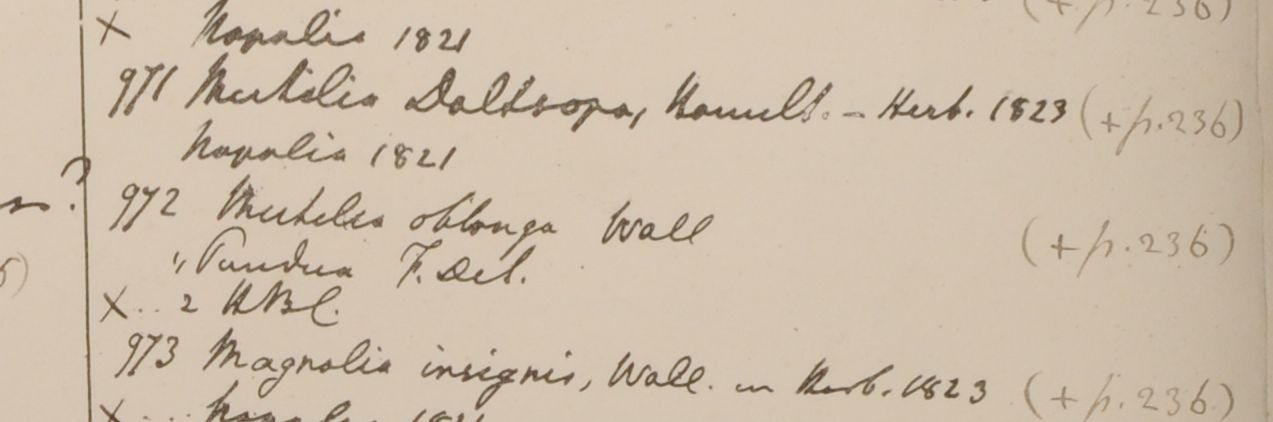 (+ p. 236)
× Napalia 1821
971 Michelia Doltsopa, Hamilt. - Herb. 1823 (+ p. 236)
Napalia 1821
? 972 Michelia oblonga Wall (+ p. 236)
" Pundua F. De S.
× .. 2 HBC.
973 Magnolia insignis, Wall. in Herb. 1823 (+ p. 236)
× ... 1821